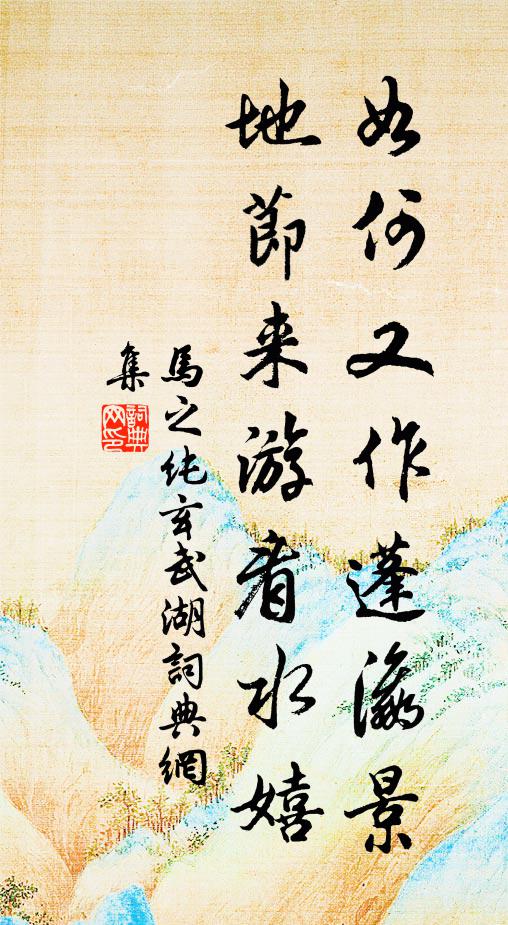 如何又作蓬瀛景
地莭来游看水嬉
馬之纯玄武湖詞典網
集
詞典网印